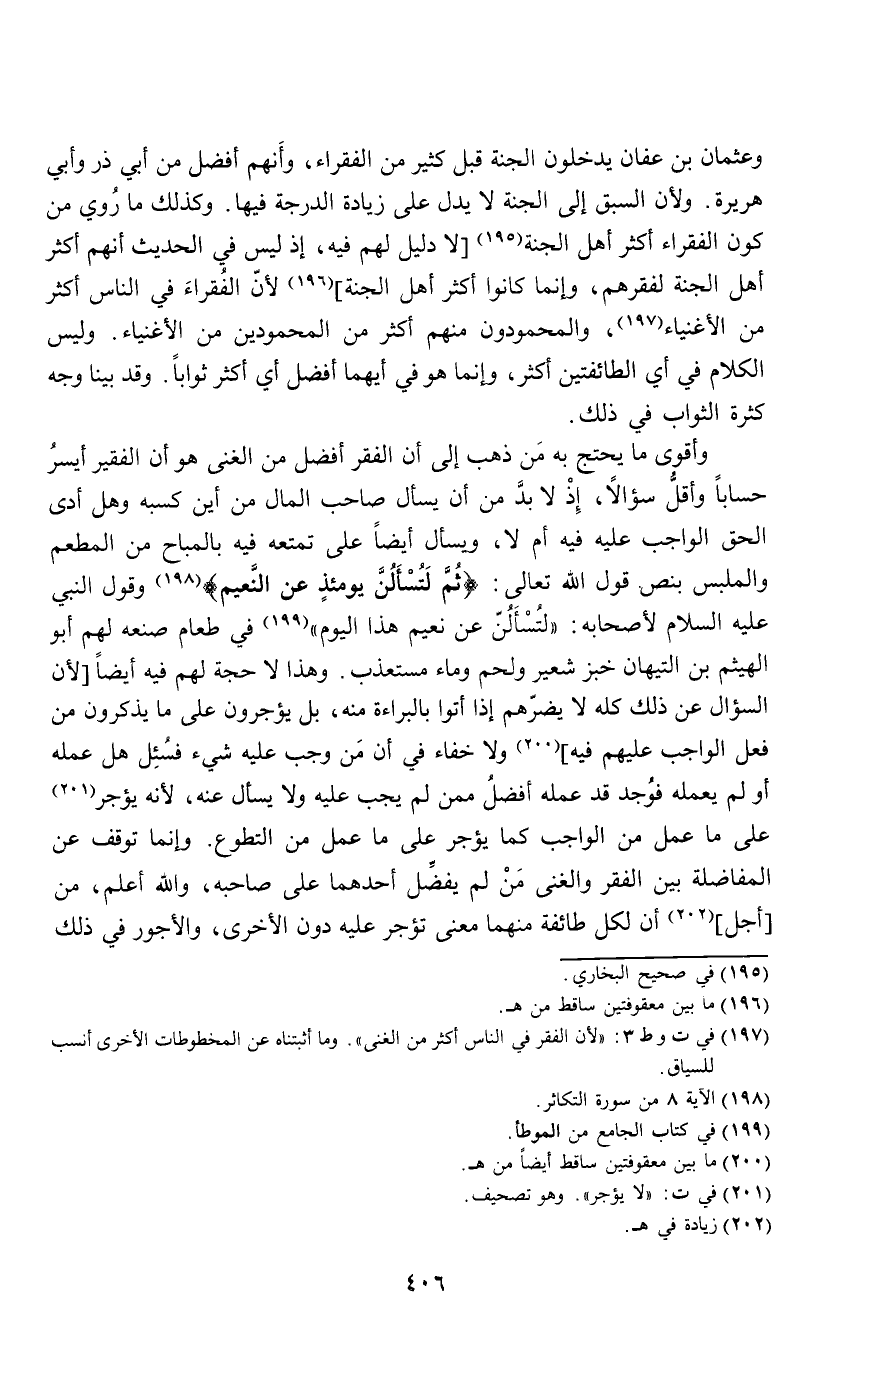 وعثمان بن عفان يدخلون الجنة قبل كثير من الفقراء، وأَنهم أفضل من أبي ذر وأبي
هريرة. ولأن السبق إلى الجنة لا يدل على زيادة الدرجة فيها. وكذلك ما رُوي من
كون الفقراء أكثر أهل الجنة(١٩٥) [لا دليل لهم فيه، إذ ليس في الحديث أنهم أكثر
أهل الجنة لفقرهم، وإنما كانوا أكثر أهل الجنة](١٩٦) لأنّ الفُقراءَ في الناس أكثر
من الأغنياء(١٩٧)، والمحمودون منهم أكثر من المحمودين من الأغنياء. وليس
الكلام في أي الطائفتين أكثر، وإنما هو في أيهما أفضل أي أكثر ثواباً. وقد بينا وجه
كثرة الثواب في ذلك.
وأقوى ما يحتج به مَن ذهب إلى أن الفقر أفضل من الغنى هو أن الفقير أيسرُ
حساباً وأقلُّ سؤالًا، إِذْ لا بدَّ من أن يسأل صاحب المال من أين كسبه وهل أدى
الحق الواجب عليه فيه أم لا، ويسأل أيضاً على تمتعه فيه بالمباح من المطعم
والملبس بنص قول الله تعالى: ﴿ثُمَّ لَتُسْأَلُنَّ يومئذٍ عن النَّعيم﴾(١٩٨) وقول النبي
عليه السلام لأصحابه: «لتُسْأَلُنّ عن نعيم هذا اليوم»(١٩٩) في طعام صنعه لهم أبو
الهيثم بن التيهان خبز شعير ولحم وماء مستعذب. وهذا لا حجة لهم فيه أيضاً [لأن
السؤال عن ذلك كله لا يضرّهم إذا أتوا بالبراءة منه، بل يؤجرون على ما يذكرون من
فعل الواجب عليهم فيه](٢٠٠) ولا خفاء في أن مَن وجب عليه شيء فسُئِل هل عمله
أو لم يعمله فوُجد قد عمله أفضلُ ممن لم يجب عليه ولا يسأل عنه، لأنه يؤجر(٢٠١)
على ما عمل من الواجب كما يؤجر على ما عمل من التطوع. وإنما توقف عن
المفاضلة بين الفقر والغنى مَنْ لم يفضِّل أحدهما على صاحبه، والله أعلم، من
[أجل](٢٠٢) أن لكل طائفة منهما معنى تؤجر عليه دون الأخرى، والأجور في ذلك
(١٩٥) في صحيح البخاري.
(١٩٦) ما بين معقوفتين ساقط من هـ.
(١٩٧) في ت و ط ٣: «لأن الفقر في الناس أكثر من الغنى». وما أثبتناه عن المخطوطات الأخرى أنسب
للسياق.
(١٩٨) الآية ٨ من سورة التكاثر.
(١٩٩) في كتاب الجامع من الموطأ.
(٢٠٠) ما بين معقوفتين ساقط أيضاً من هـ.
(٢٠١) في ت: «لا يؤجر». وهو تصحيف.
(٢٠٢) زيادة في هـ.
٤٠٦